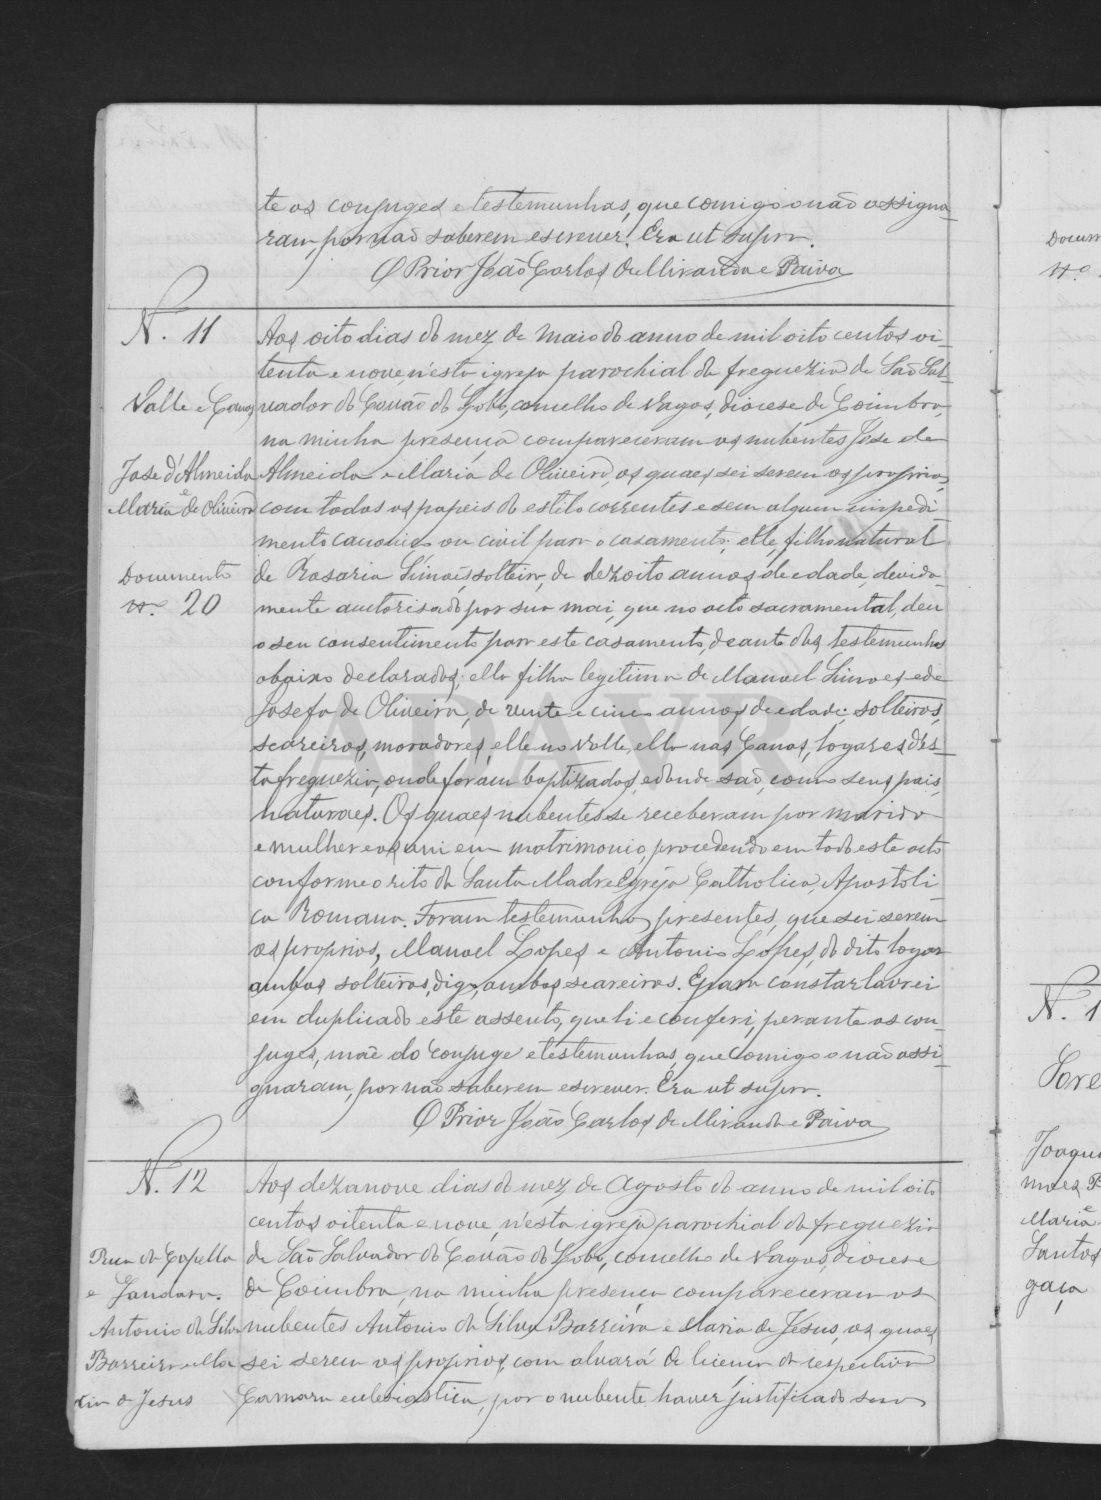 te os conjuges e testemunhas, que comigo o não assigna-
ram, por não saberem escrever. Era ut supra.
O Prior João Carlos de Miranda e Paiva
N. 11
Valle e Canas
Jose d'Almeida
e
Maria de Oliveira
Documento
n.º 20
Aos oito dias do mez de Maio do anno de mil oito centos oi-
tenta e nove, n'esta igreja parochial da freguezia de São Sal-
vador do Covão do Lobo, concelho de Vagos, diocese de Coimbra,
na minha presença compareceram os nubentes Jose de
Almeida e Maria de Oliveira, os quaes sei serem os proprios,
com todos os papeis do estilo correntes e sem algum impedi-
mento canonico ou civil para o casamento; elle, filho natural
de Rosaria Simões, solteira, de dezoito annos de edade, devida-
mente auctorisado por sua mai, que no acto sacramental, deu
o seu consentimento para este casamento, deante das testemunhas
abaixo declaradas; ella filha legitima de Manoel Simoes e de
Josefa de Oliveira, de vinte e cinco annos de edade; solteiros,
seareiros, moradores, elle no Valle, ella nas Canas, logares des-
ta freguezia, onde foram baptizados, e donde são, como seus pais,
naturaes. Os quaes nubentes se receberam por marido
e mulher e os uni em matrimonio, procedendo em todo este acto
conforme o rito da Santa Madre Egreja Catholica, Apostoli-
ca Romana. Foram testemunhas presentes, que sei serem
os proprios, Manoel Lopes e Antonio Lopes, do dito logar
ambos solteiros, digo, ambos seareiros. E para constar lavrei
em duplicado este assento, que li e conferi, perante os con-
juges, mãe do conjuge e testemunhas, que comigo o não assi-
gnaram, por não saberem escrever. Era ut supra.
O Prior João Carlos de Miranda e Paiva
N. 12
Rua da Capella
e Gandara.
Antonio da Silva
Barreira e Ma-
ria de Jesus
Aos dezanove dias do mez de Agosto do anno de mil oito
centos oitenta e nove, n'esta igreja parochial da freguezia
de São Salvador do Covão do Lobo, concelho de Vagos, diocese
de Coimbra, na minha presença compareceram os
nubentes Antonio da Silva Barreira e Maria de Jesus, os quaes
sei serem os proprios, com alvará de licença da respectiva
Camara ecclesiastica, por o nubente haver justificado seu
ADAVR
Docum
n.º
N. 1
Joaqui
moes P
e
Maria
Santos
gaça